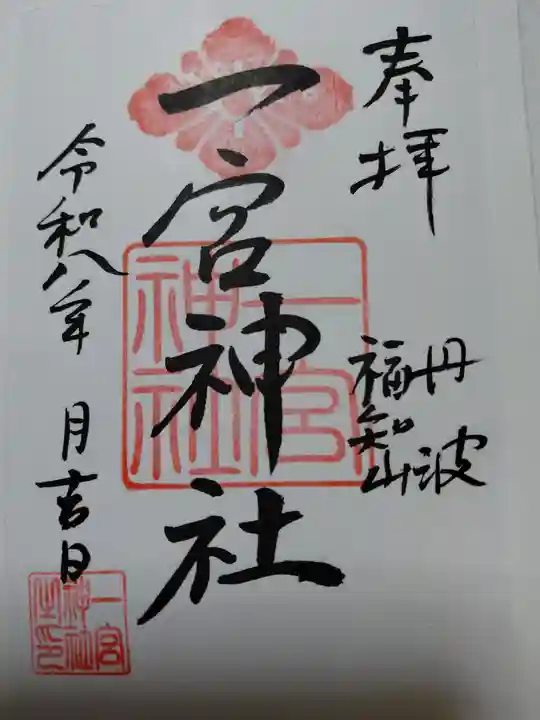 奉拝
丹波
福知山
一宮神社
一宮
神社
令和八年 月吉日
一宮
神社
之印